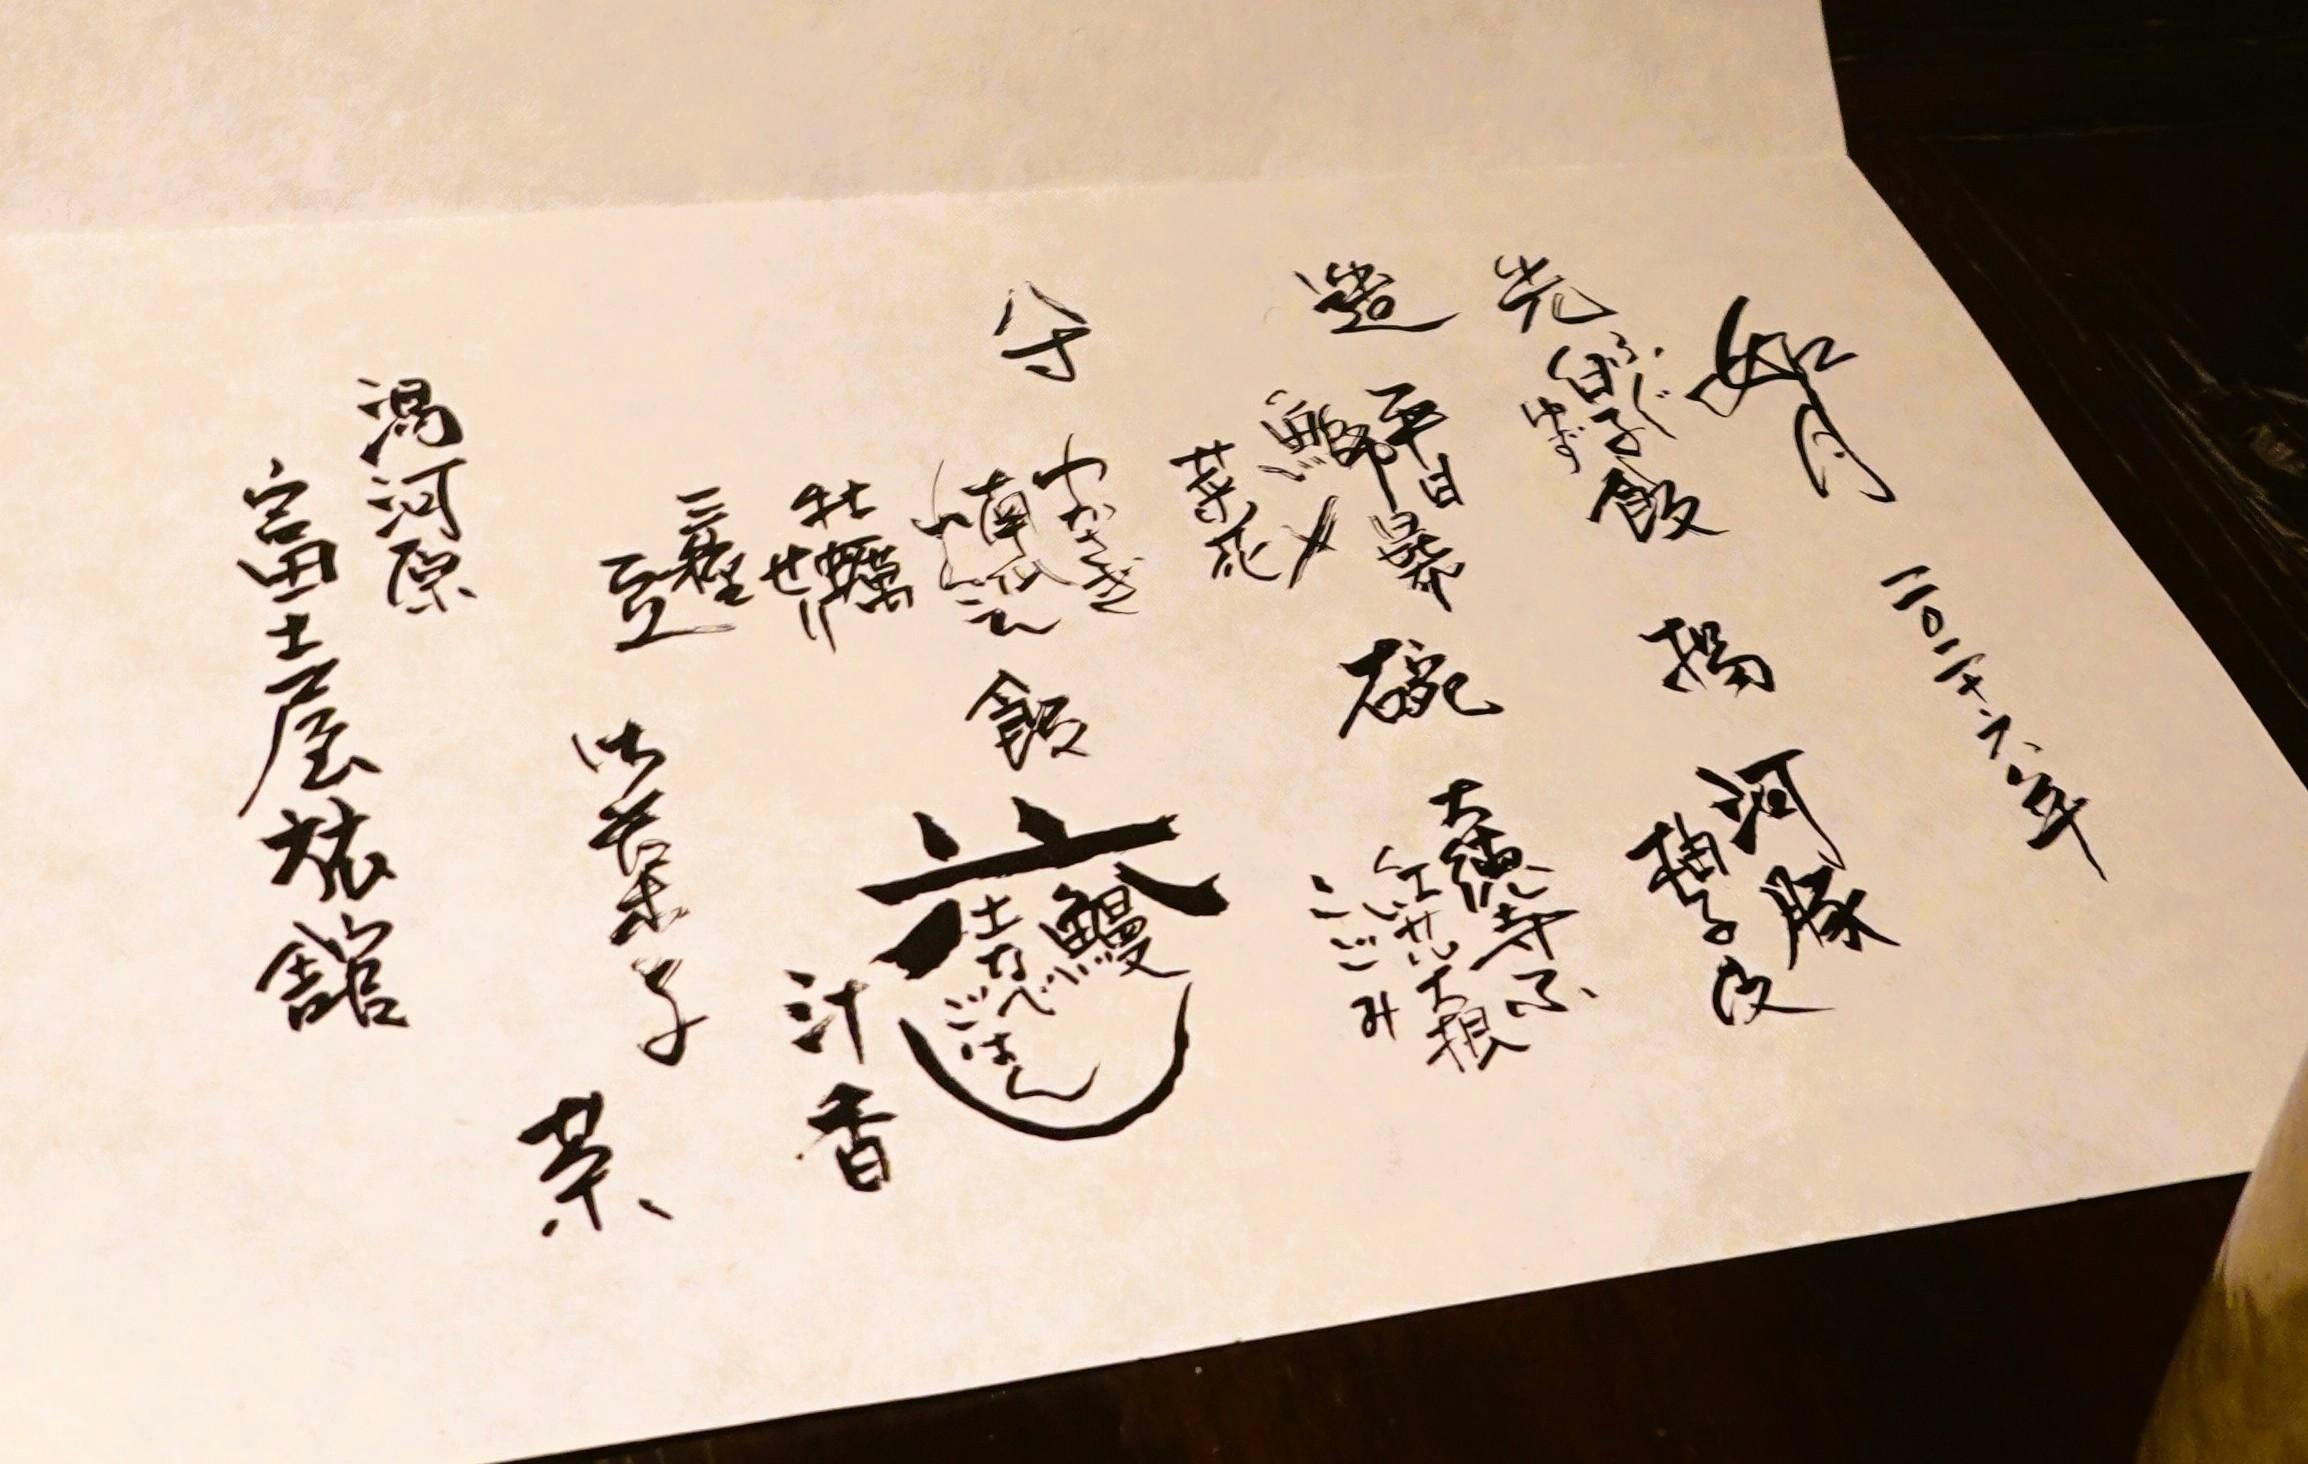 如月
二〇二六年
先
ふぐ
白子飯
ゆず
揚
河豚
柚子皮
造
平目昆布
鰤〆
菜花
碗
大徳寺ふ
紅芯大根
こごみ
八寸
わかさぎ
南蛮
牡蠣
せり
三種
豆
飯
鰻
土なべ
ごはん
汁
香
御菓子
茶
湯河原
富士屋旅館